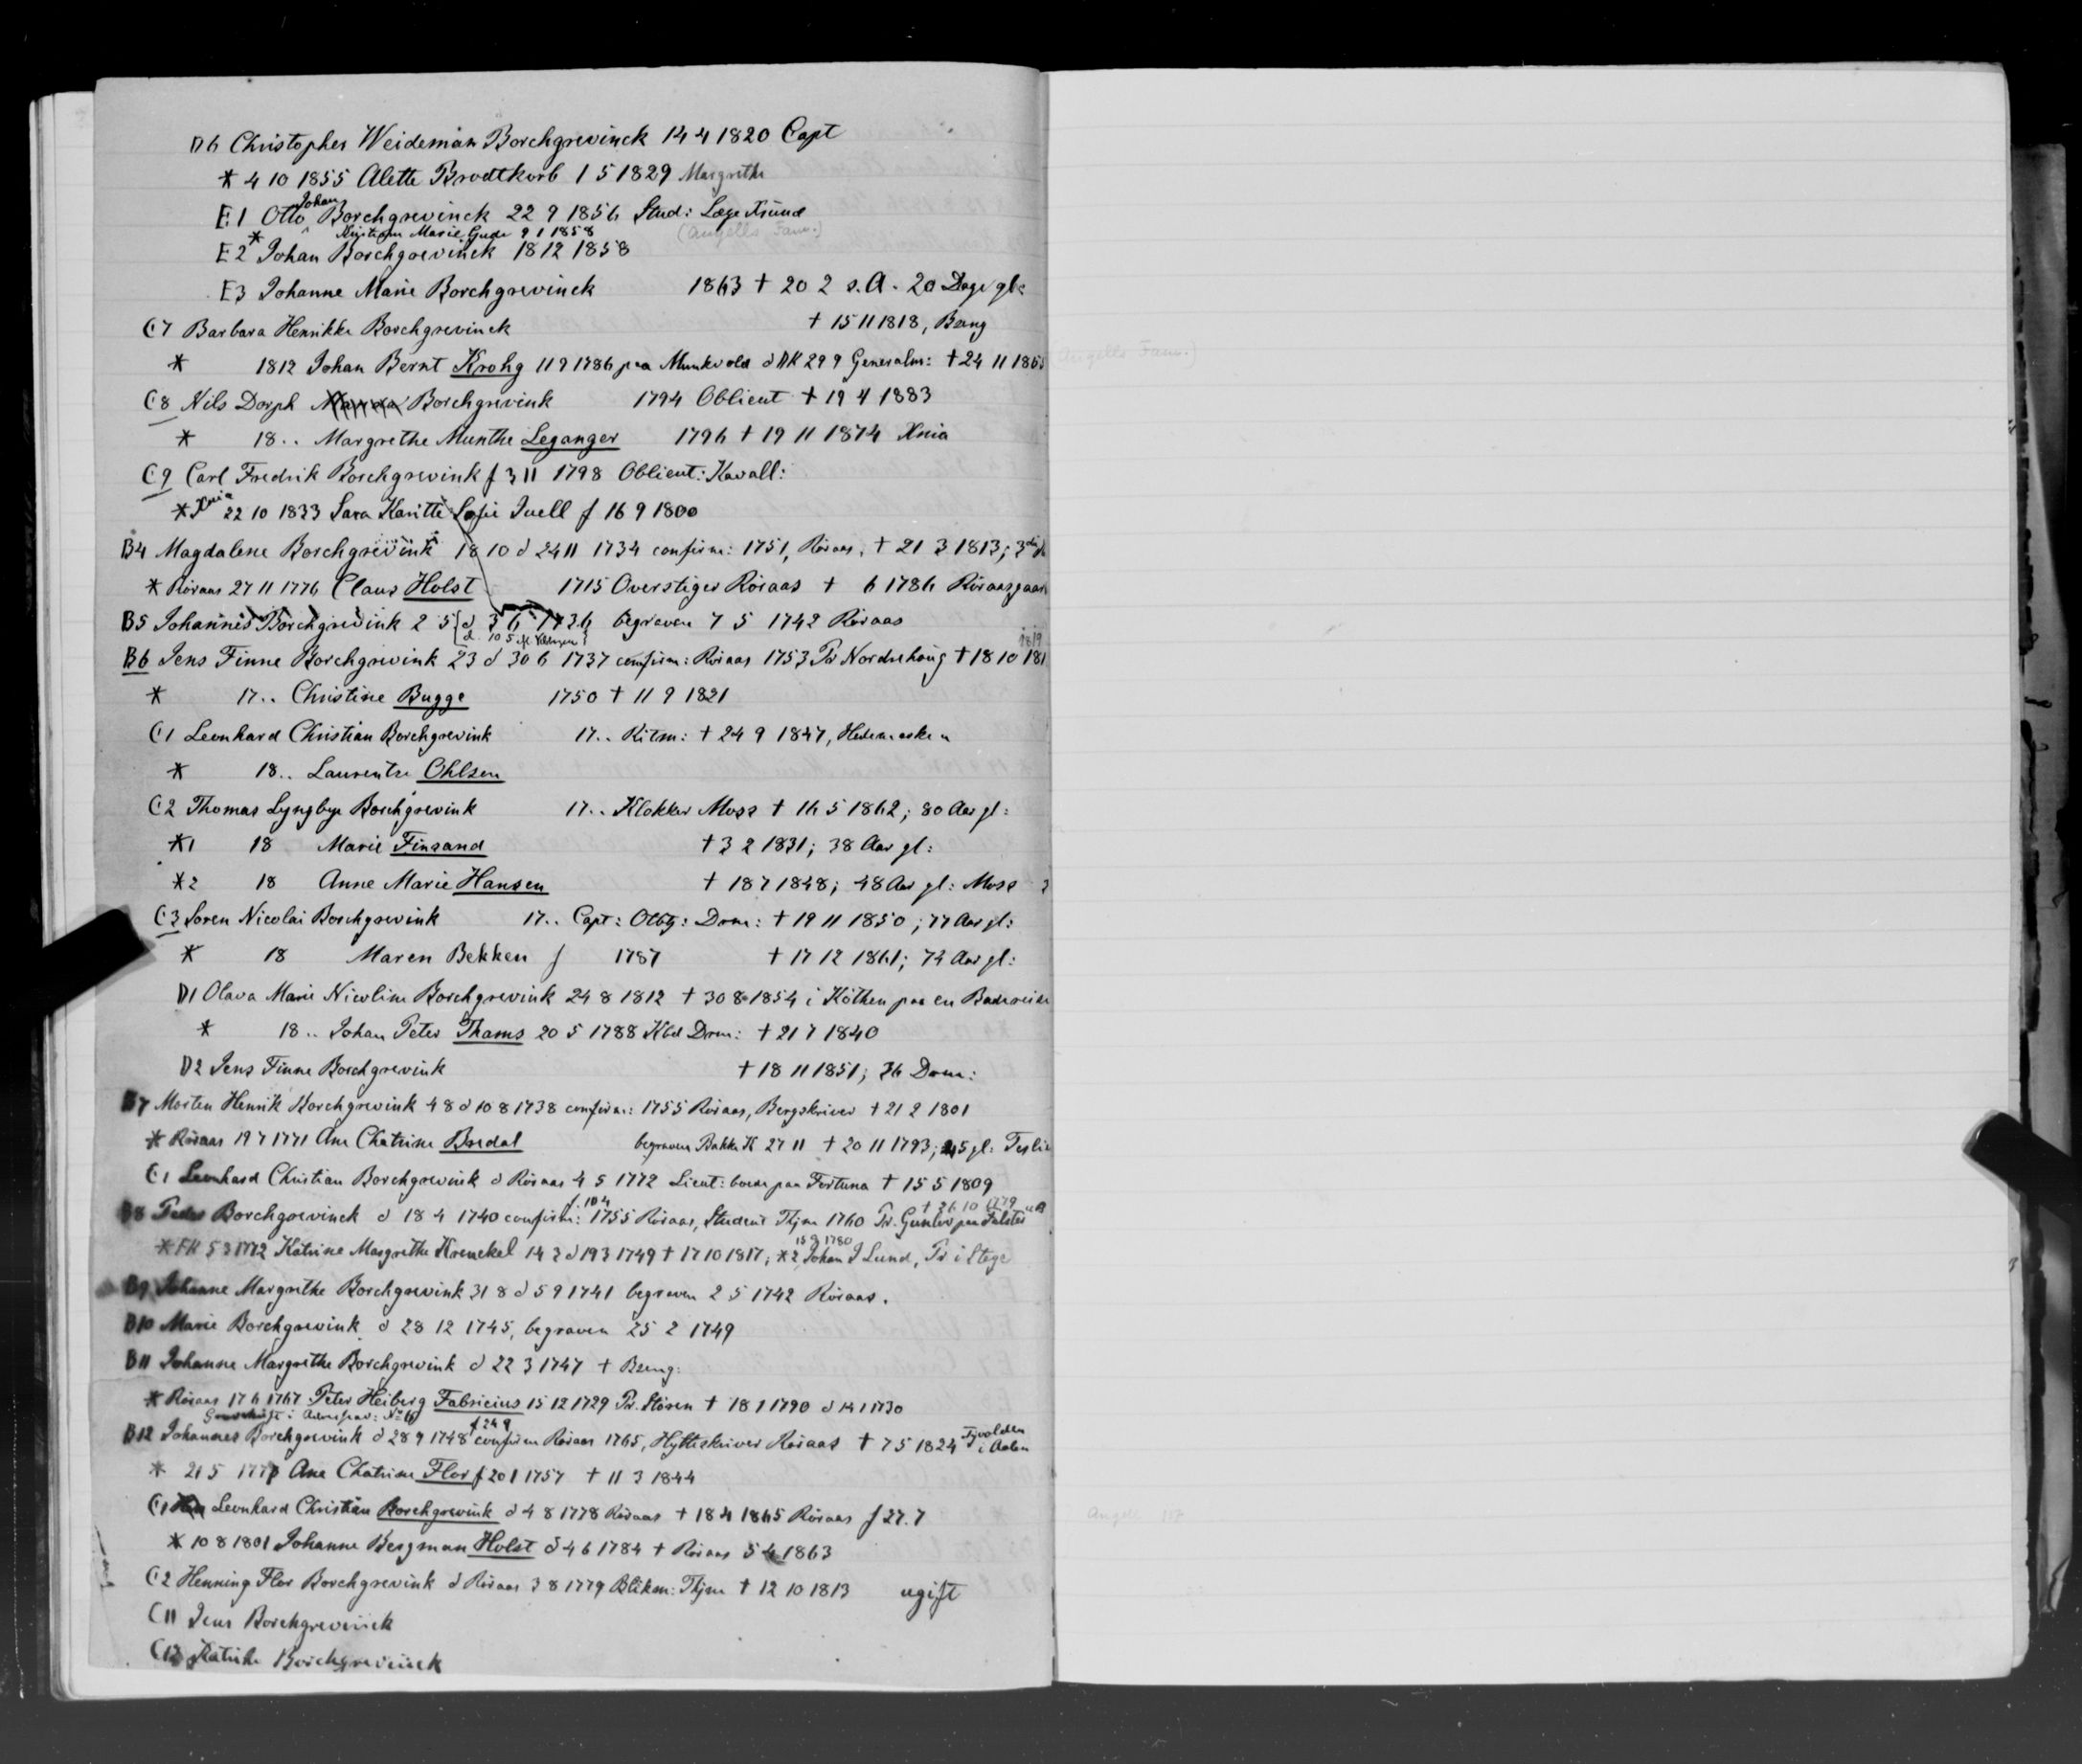 D6 Christopher Weideman Borchgrevinck 14 4 1820 Capt
* 4 10 1855 Alette Brodtkorb 1 5 1829 Margrethe
E1 Otto Johan Borchgrevinck 22 9 1856 Stud: Læge Xsund
(Angells Fam.)
* Marie Gude 9 1 1858
E2 Johan Borchgrevinck 18 12 1858
E3 Johanne Marie Borchgrevinck 1863 † 20 2 s.A. 20 Dage gl:
C7 Barbara Henrikke Borchgrevinck † 15 11 1818, Bæng
* 1812 Johan Bernt Krohg 11 9 1786 paa Munkvold d DK 29 9 Generalm: † 24 11 1865
C8 Nils Dorph Borchgrevink 1794 Oblieut † 19 4 1883
* 18.. Margrethe Munthe Leganger 1796 † 19 11 1874 Xnia
C9 Carl Fredrik Borchgrevink f 3 11 1798 Oblieut: Kavall:
* Xnia 22 10 1833 Sara Karitte Sofie Juell f 16 9 1800
B4 Magdalene Borchgrevink 18 10 d 24 11 1734 confirm: 1751, Röraas, † 21 3 1813;
* Röraas 27 11 1776 Claus Holst 1715 Overstiger Röraas † 6 1786 Röraasgaard
B5 Johannes Borchgrevink 2 5 {d 3 6 1736 begraven 7 5 1742 Röraas
d. 10 5
B6 Jens Finne Borchgrevink 23 d 30 6 1737 confirm: Röraas 1753 Pr Nordrehoug † 18 10 181
1819
* 17.. Christine Bugge 1750 † 11 9 1821
C1 Leonhard Christian Borchgrevink 17.. Ritm: † 24 9 1847, Hedemarken
* 18.. Laurentze Ohlsen
C2 Thomas Lyngbye Borchgrevink 17.. Klokker Moss † 16 5 1862; 80 Aar gl:
*1 18 Marie Finsand † 3 2 1831; 38 Aar gl:
*2 18 Anne Marie Hansen † 18 7 1848; 48 Aar gl: Moss
C3 Soren Nicolai Borchgrevink 17.. Capt: Olbg: Drm: † 19 11 1850; 77 Aar gl:
* 18 Maren Bekken f 1787 † 17 12 1861; 74 Aar gl:
D1 Olava Marie Nicoline Borchgrevink 24 8 1812 † 30 8 1854 i Köthen paa en Badereise
* 18.. Johan Peter Thams 20 5 1788 Kbd Drm: † 21 7 1840
D2 Jens Finne Borchgrevink † 18 11 1851; 36 Drm:
B7 Morten Henrik Borchgrevink 4 8 d 10 8 1738 confirm: 1755 Röraas, Bergskriver † 21 2 1801
* Röraas 19 7 1771 Ane Chatrine Bredal begraven Bakke K 27 11 † 20 11 1793; 45 gl:
C1 Leonhard Christian Borchgrevink d Röraas 4 5 1772 Lieut: boede paa Fortuna † 15 5 1809
f 10 4 † 26 10 1779
B8 Peder Borchgrevinck d 18 4 1740 confirm: 1755 Röraas, Student Thjm 1760 Pr. Gunlev paa Falster
15 9 1780
* FK 5 3 1772 Katrine Margrethe Krenckel 14 3 d 19 3 1749 † 17 10 1817; *2 Johan J Lund, Pr i Stege
B9 Johanne Margrethe Borchgrevink 31 8 d 5 9 1741 begraven 2 5 1742 Röraas.
B10 Marie Borchgrevink d 28 12 1745, begraven 25 2 1749
B11 Johanne Margrethe Borchgrevink d 22 3 1747 † Bæng:
* Röraas 17 6 1767 Peter Heiberg Fabricius 15 12 1729 Pr. Stören † 18 1 1790 d 14 1 1730
f 24 9
B12 Johannes Borchgrevink d 28 9 1748 confirm Röraas 1765, Hytteskriver Röraas † 7 5 1824 Tyvolden i Aalen
* 21 5 177 Ane Chatrine Flor f 20 1 1757 † 11 3 1844
C1 Leonhard Christian Borchgrevink d 4 8 1778 Röraas † 18 4 1865 Röraas f 27.7
* 10 8 1801 Johanne Bergman Holst d 4 6 1784 † Röraas 5 4 1863
C2 Henning Flor Borchgrevink d Röraas 3 8 1779 Blikm: Thjm † 12 10 1813 ugift
C11 Jens Borchgrevinck
C12 Katrine Borchgrevinck